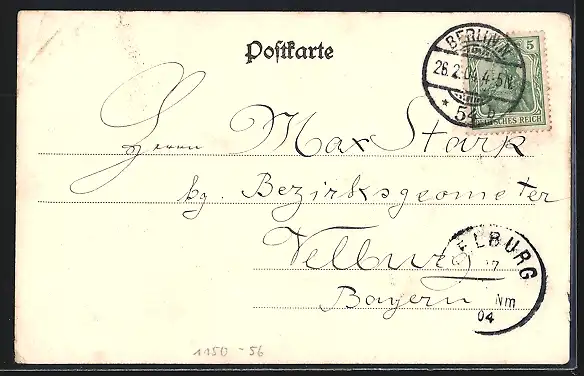 Postkarte
BERLIN N
26.2.04.4-5N.
* 54 *
5
DEUTSCHES REICH
Herrn Max Stark
kg. Bezirksgeometer
Velburg
Bayern
ELBURG
Nm
04
1150-56